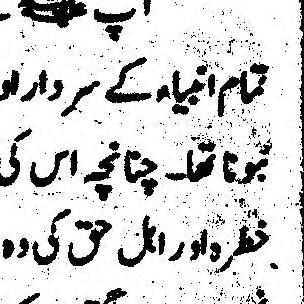 آپ
تمام انبیاء کے سردار او
ہونا تھا۔ چنانچہ اس کی
خطرہ اور اہل حق کی دہ